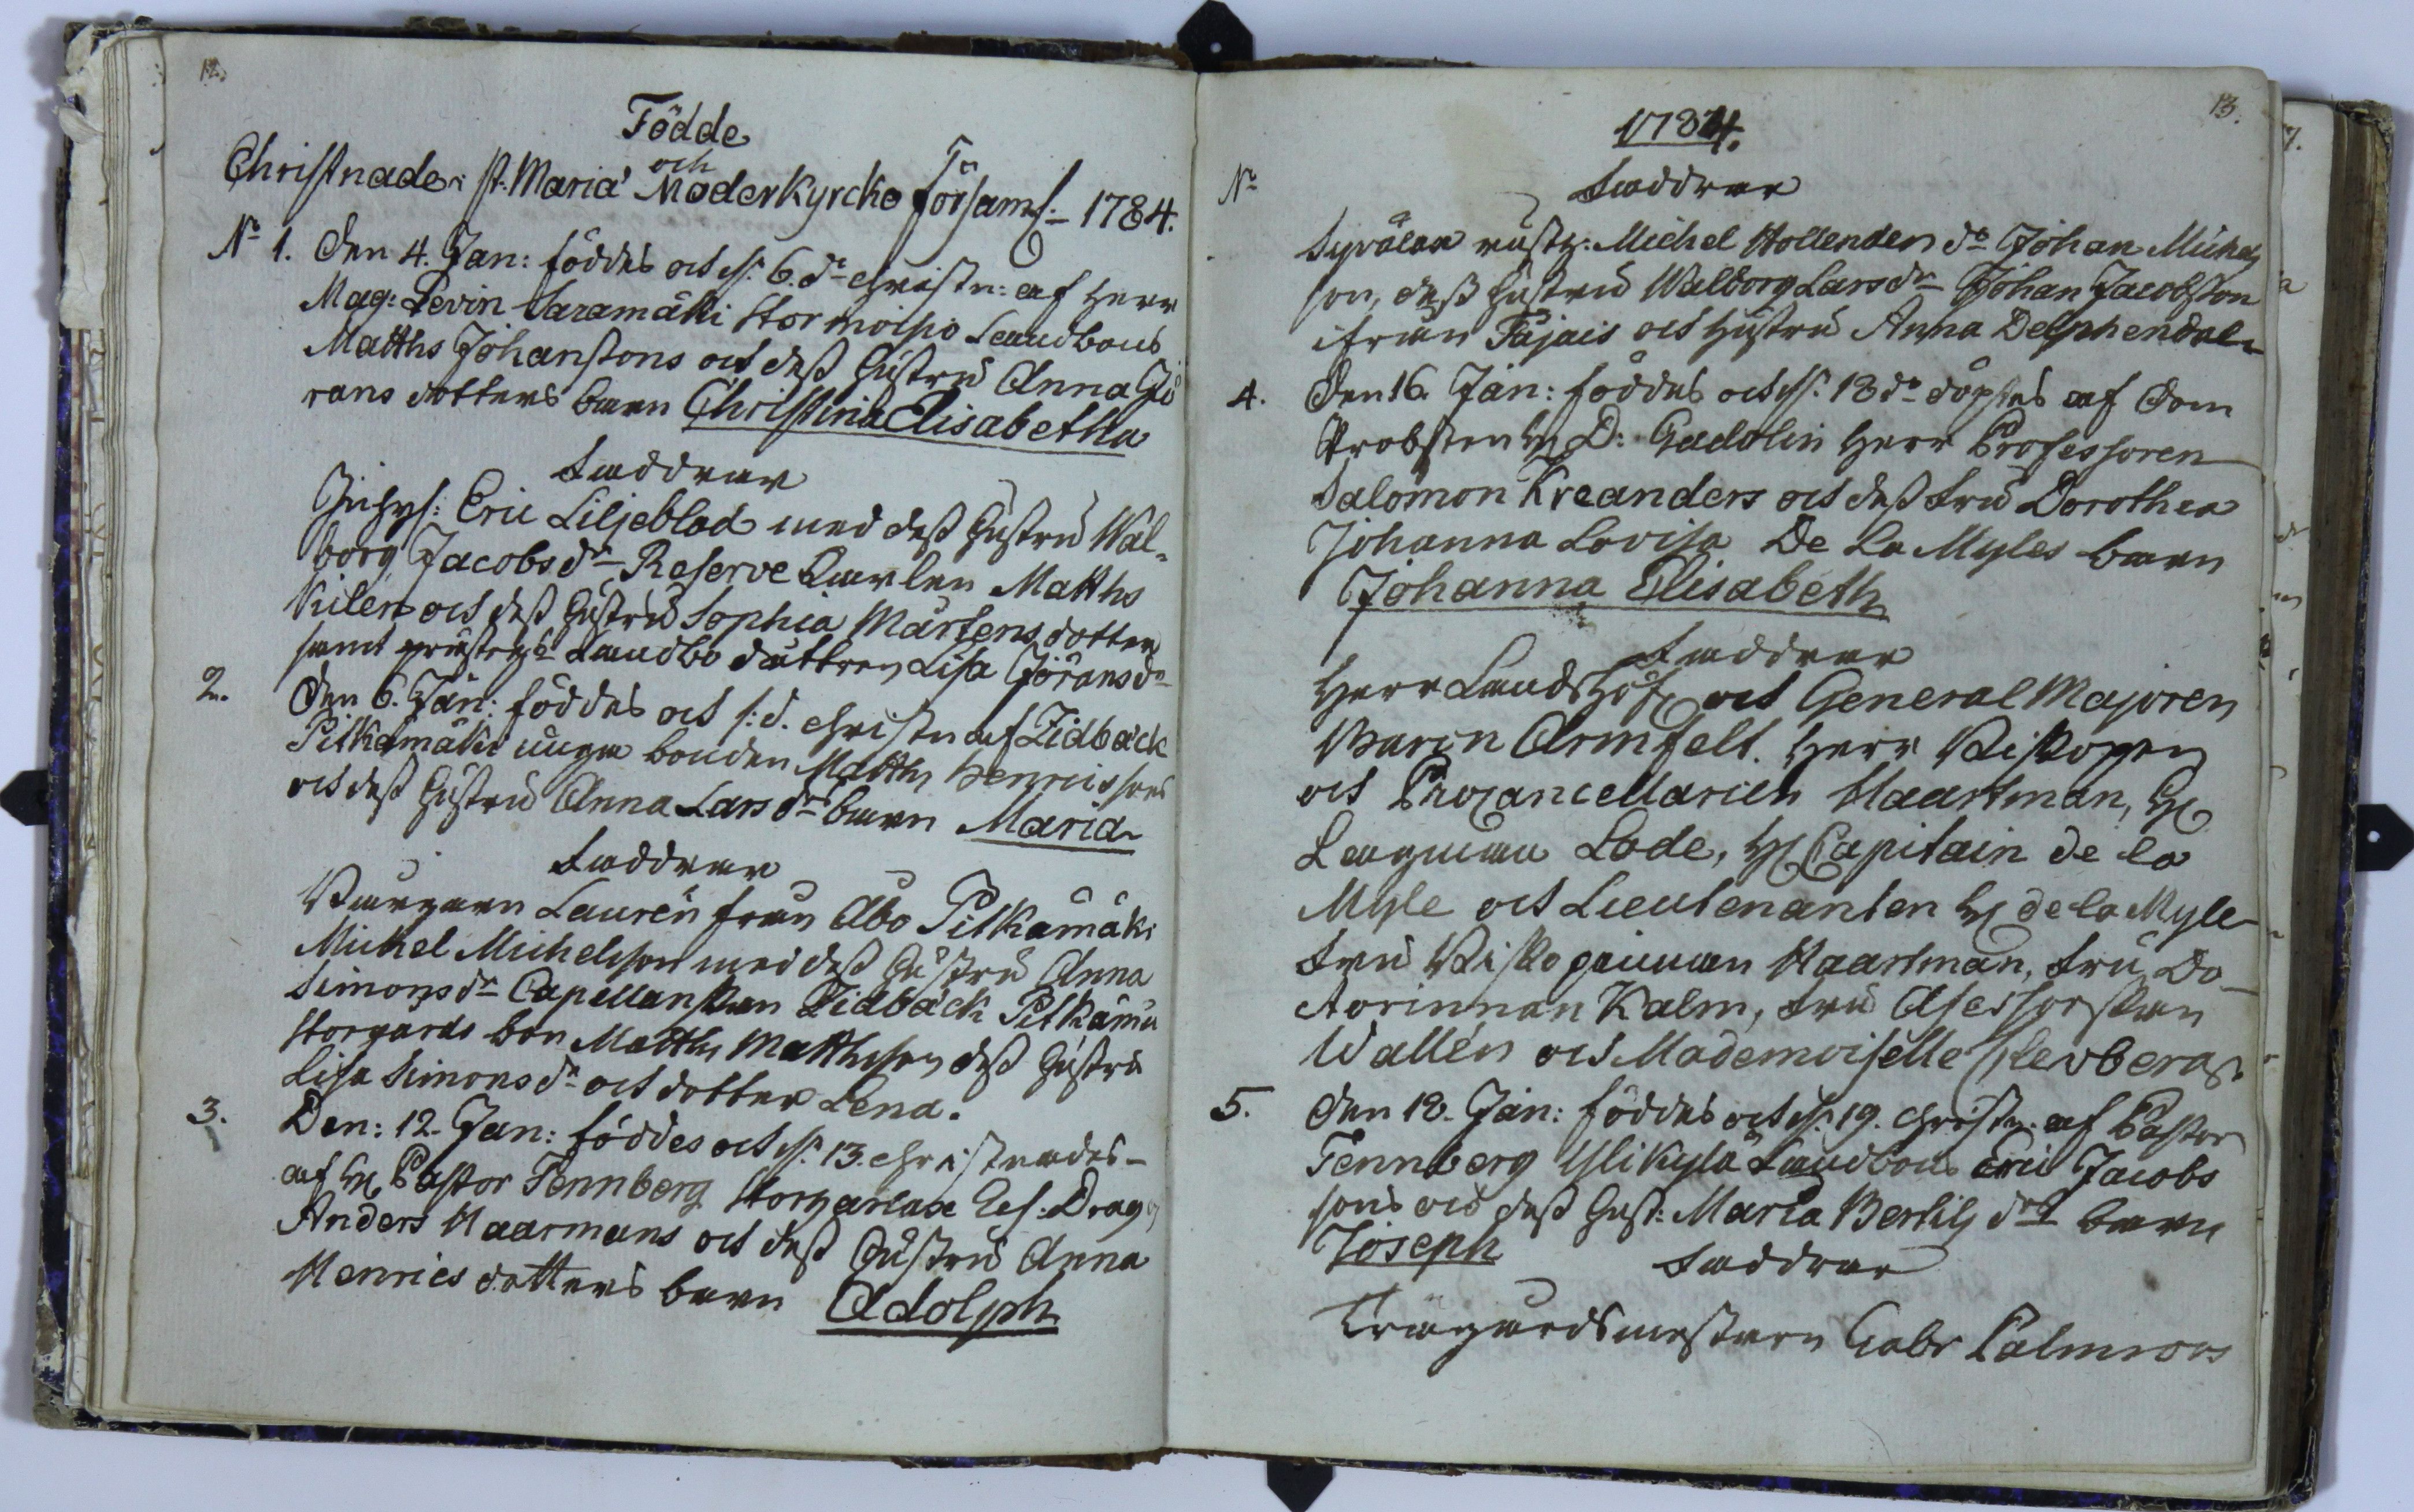 12.
Födde
och
Christnade i St. Mariæ Moderkyrcko Församl: 1784.
No 1. Den 4. Jan: föddes och 6. do christn: af Herr
Mag: Levin Saramäki Stormoisio Landbons
Matths Johanssons och dess hustru Anna Jö
rans dotters barn Christina Elisabetha
Faddrar
Eric Liljeblad med dess hustru Wal=
borg Jacobsdr Reserve Karlen Matths
Kilén och dess hustru Sophia Mårtens dotter
samt Landbo dottren Lisa Jöransdr
2. Den 6. Jan: föddes och s: d. christn af Zidbäck
Pitkämäki unga bonden Matths Henricssons
och dess hustru Anna Larsdrs barn Maria
Faddrar
Laurén från Åbo Pitkämäki
Michel Michelsson med dess hustru Anna
Simonsdr Capellanskan Zidbäck Pitkämä
Storgårds bon Matths Matthsson dess hustru
Lisa Simonsdr och dotter Lena.
3. Den: 12. Jan: föddes och 13. christnades
af H Pastor Tennberg Drag
Anders Haarmans och dess hustru Anna
Henrics dotters barn Adolph
13.
1784.
No Faddrar
rustg. Michel Hollender do Johan Michels
son, dess hustru Walborg Larsdr Johan Jacobsson
ifrån Tajais och hustru Anna Delphendal
4. Den 16. Jan: föddes och 18 do döptes af Dom
Probsten H D: Gadolin Herr Professoren
Salomon Kreanders och dess Fru Dorothea
Johanna Lovisa De La Myles barn
Johanna Elisabeth
Faddrar
Herr Landshöf och General Majoren
Baron Armfelt. Herr Biskopen
och Procancellarien Haartman, H
Lagman Lode, H Capitain de la
Myle och Lieutenanten H de la Myle
Fru Biskopinnan Haartman, Fru Do
ctorinnan Kalm, Fru Asessorskan
Wallén och Mademoiselle
5. Den 18. Jan: föddes och 19. christn. af Pastor
Tennberg Ylikylä Landbons Eric Jacobs
sons och dess hust: Maria Bertilsdrs barn
Joseph Faddrar
Trägårdsmestarn Gabr Palmroos